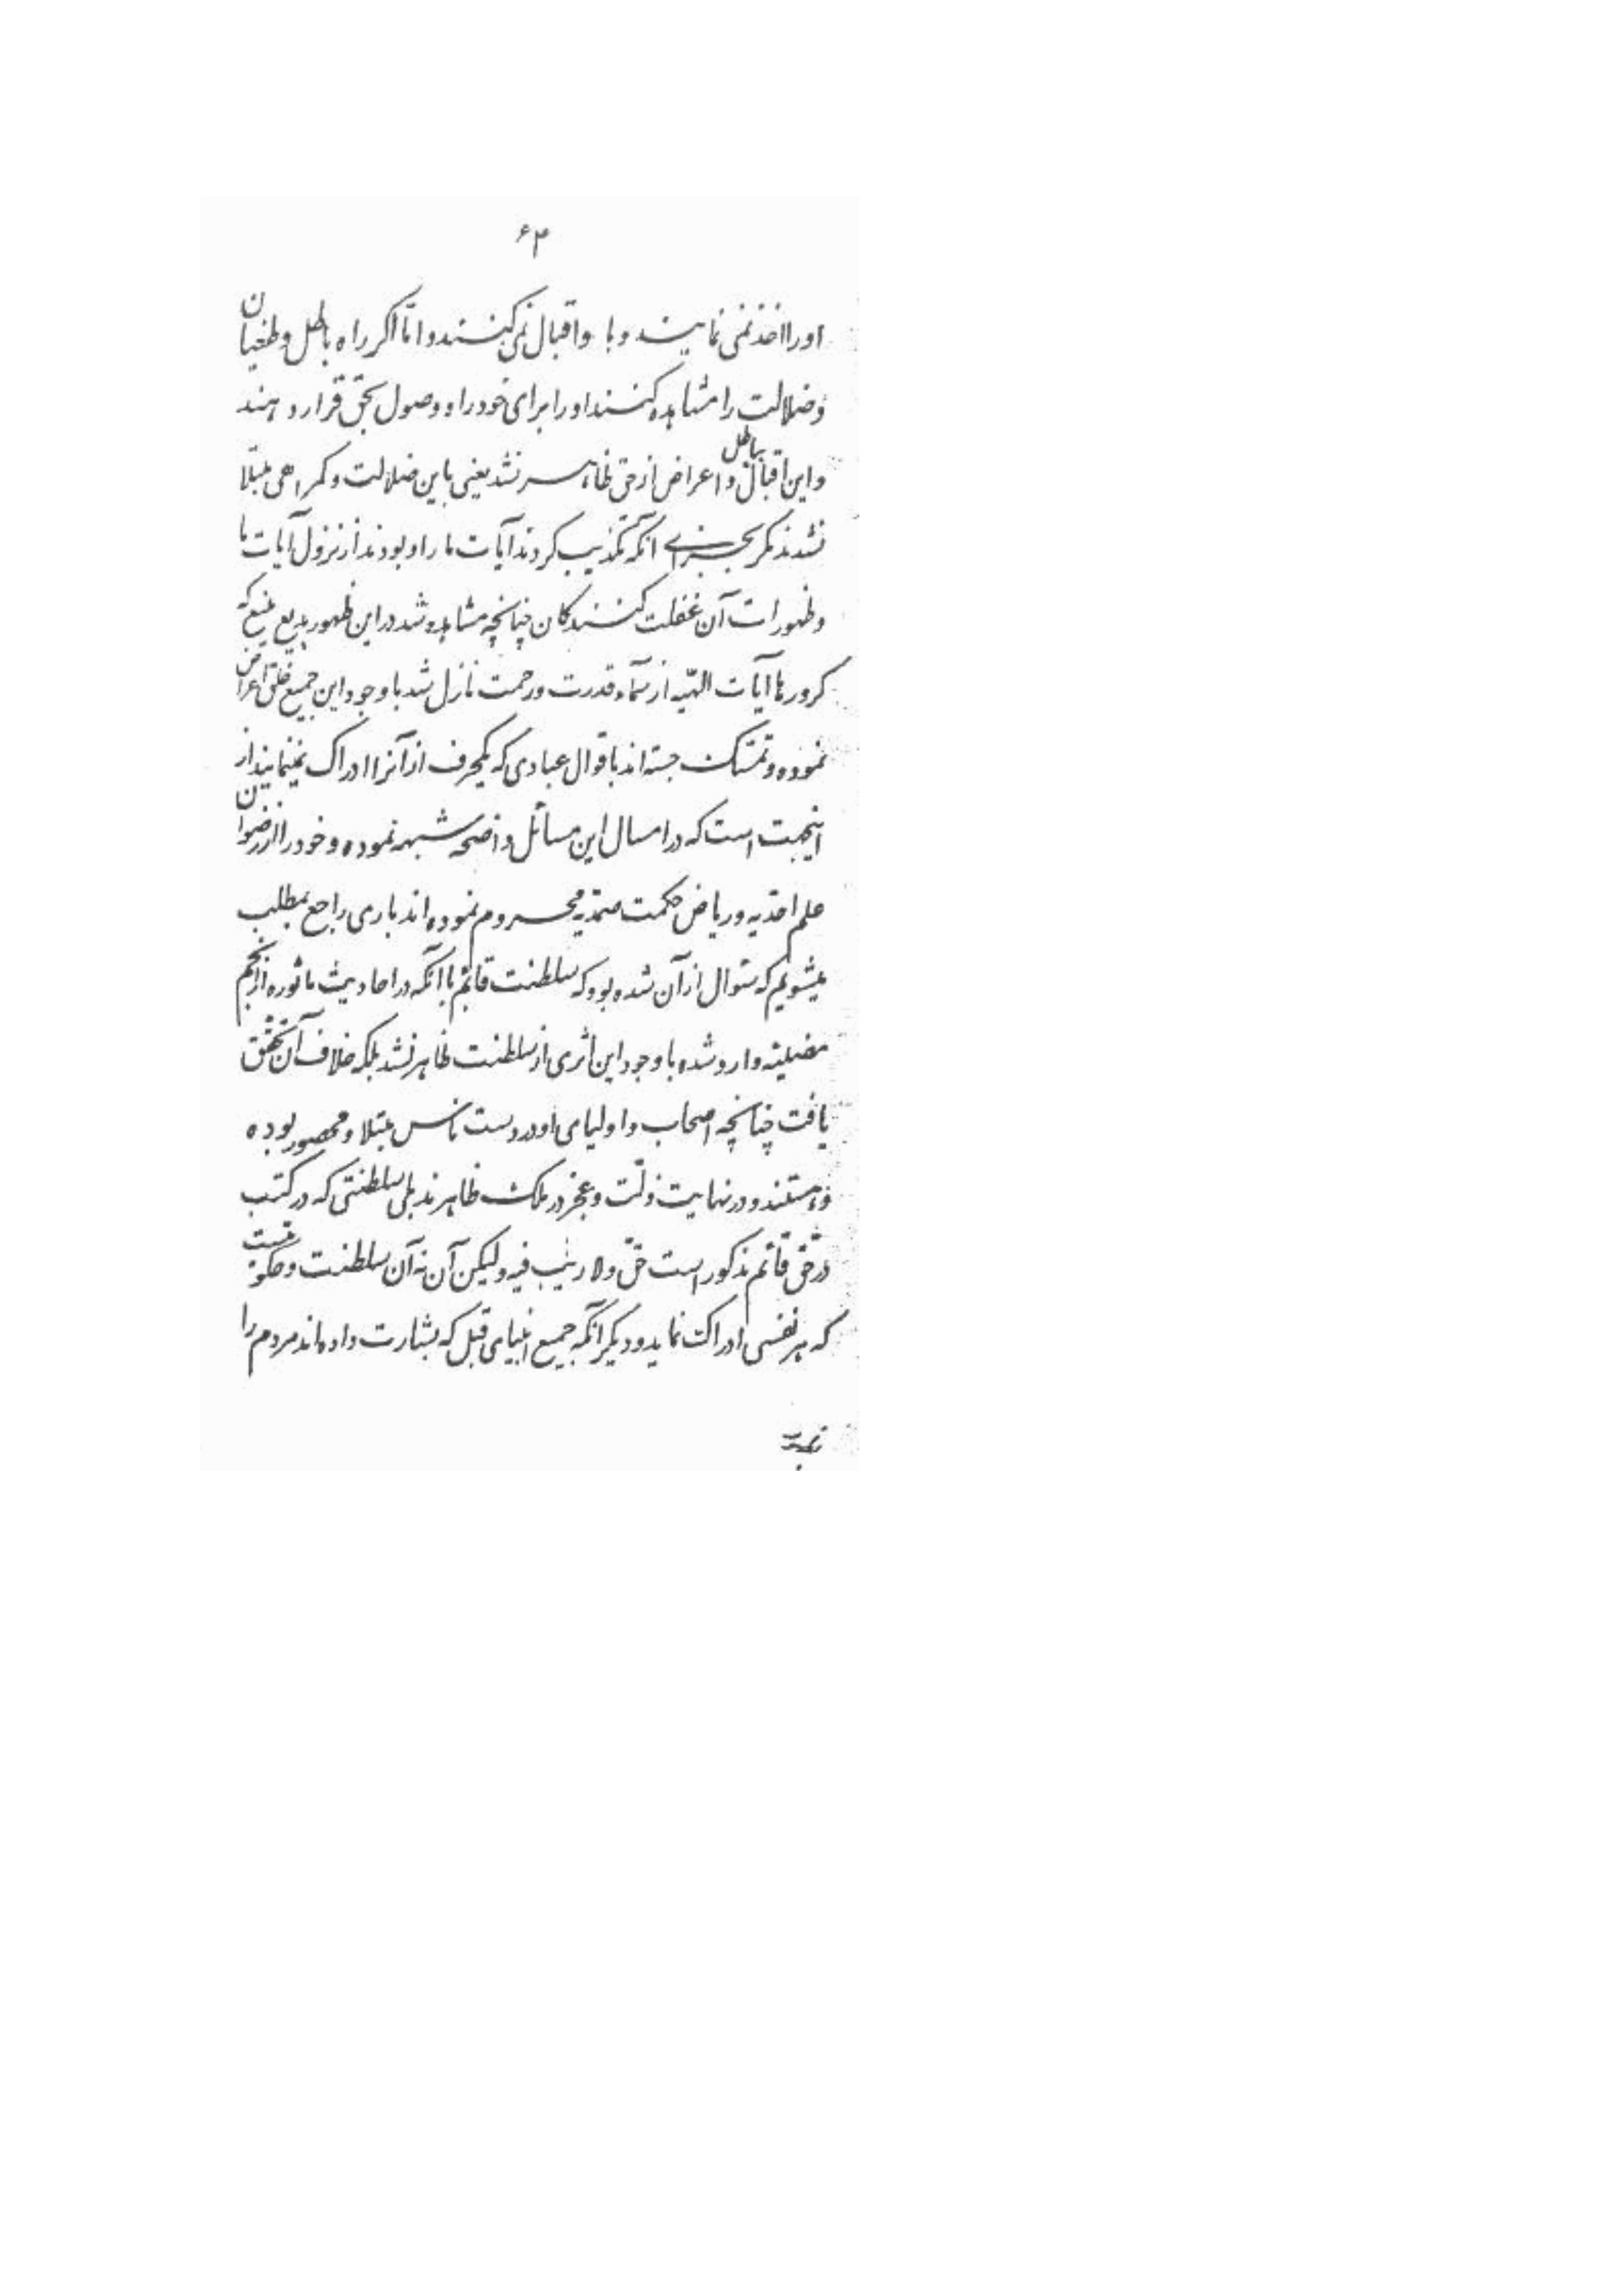 ۶۴
او را اخذ نمی نمایند و باو اقبال نمی کنند و امّا اگر راه باطل و طغیان
و ضلالت را مشاهده کنند او را برای خود راه وصول بحقّ قرار دهند
و این اقبال بباطل و اعراض از حق ظاهر نشد یعنی باین ضلالت و گمراهی مبتلا
نشدند مگر بجزای آنکه تکذیب کردند آیات ما را و بودند از نزول آیات ما
و ظهورات آن غفلت کنندگان چنانچه مشاهده شد در این ظهور بدیع منیع که
کرورها آیات الهیّه از سمآء قدرت و رحمت نازل شد با وجود این جمیع خلق اعراض
نموده و تمسّک جسته اند باقوال عبادی که یکحرف از آنرا ادراک نمینمایند از
اینجهت است که در امسال این مسائل واضحه شبهه نموده و خود را از رضوان
علم احدیه و ریاض حکمت صمدیه محروم نموده اند باری راجع بمطلب
میشویم که سئوال از آن شده بود که سلطنت قائم با آنکه در احادیث ماثوره از انجم
مضیئه وارد شده با وجود این اثری از سلطنت ظاهر نشد بلکه خلاف آن تحقّق
یافت چنانچه اصحاب و اولیای او در دست ناس مبتلا و محصور بوده
و هستند و در نهایت ذلّت و عجز در ملک ظاهرند بلی سلطنتی که در کتب
در حقّ قائم مذکور است حقّ و لا ریب فیه ولیکن آن نه آن سلطنت و حکومتست
که هر نفسی ادراک نماید و دیگر آنکه جمیع انبیای قبل که بشارت داده اند مردم را